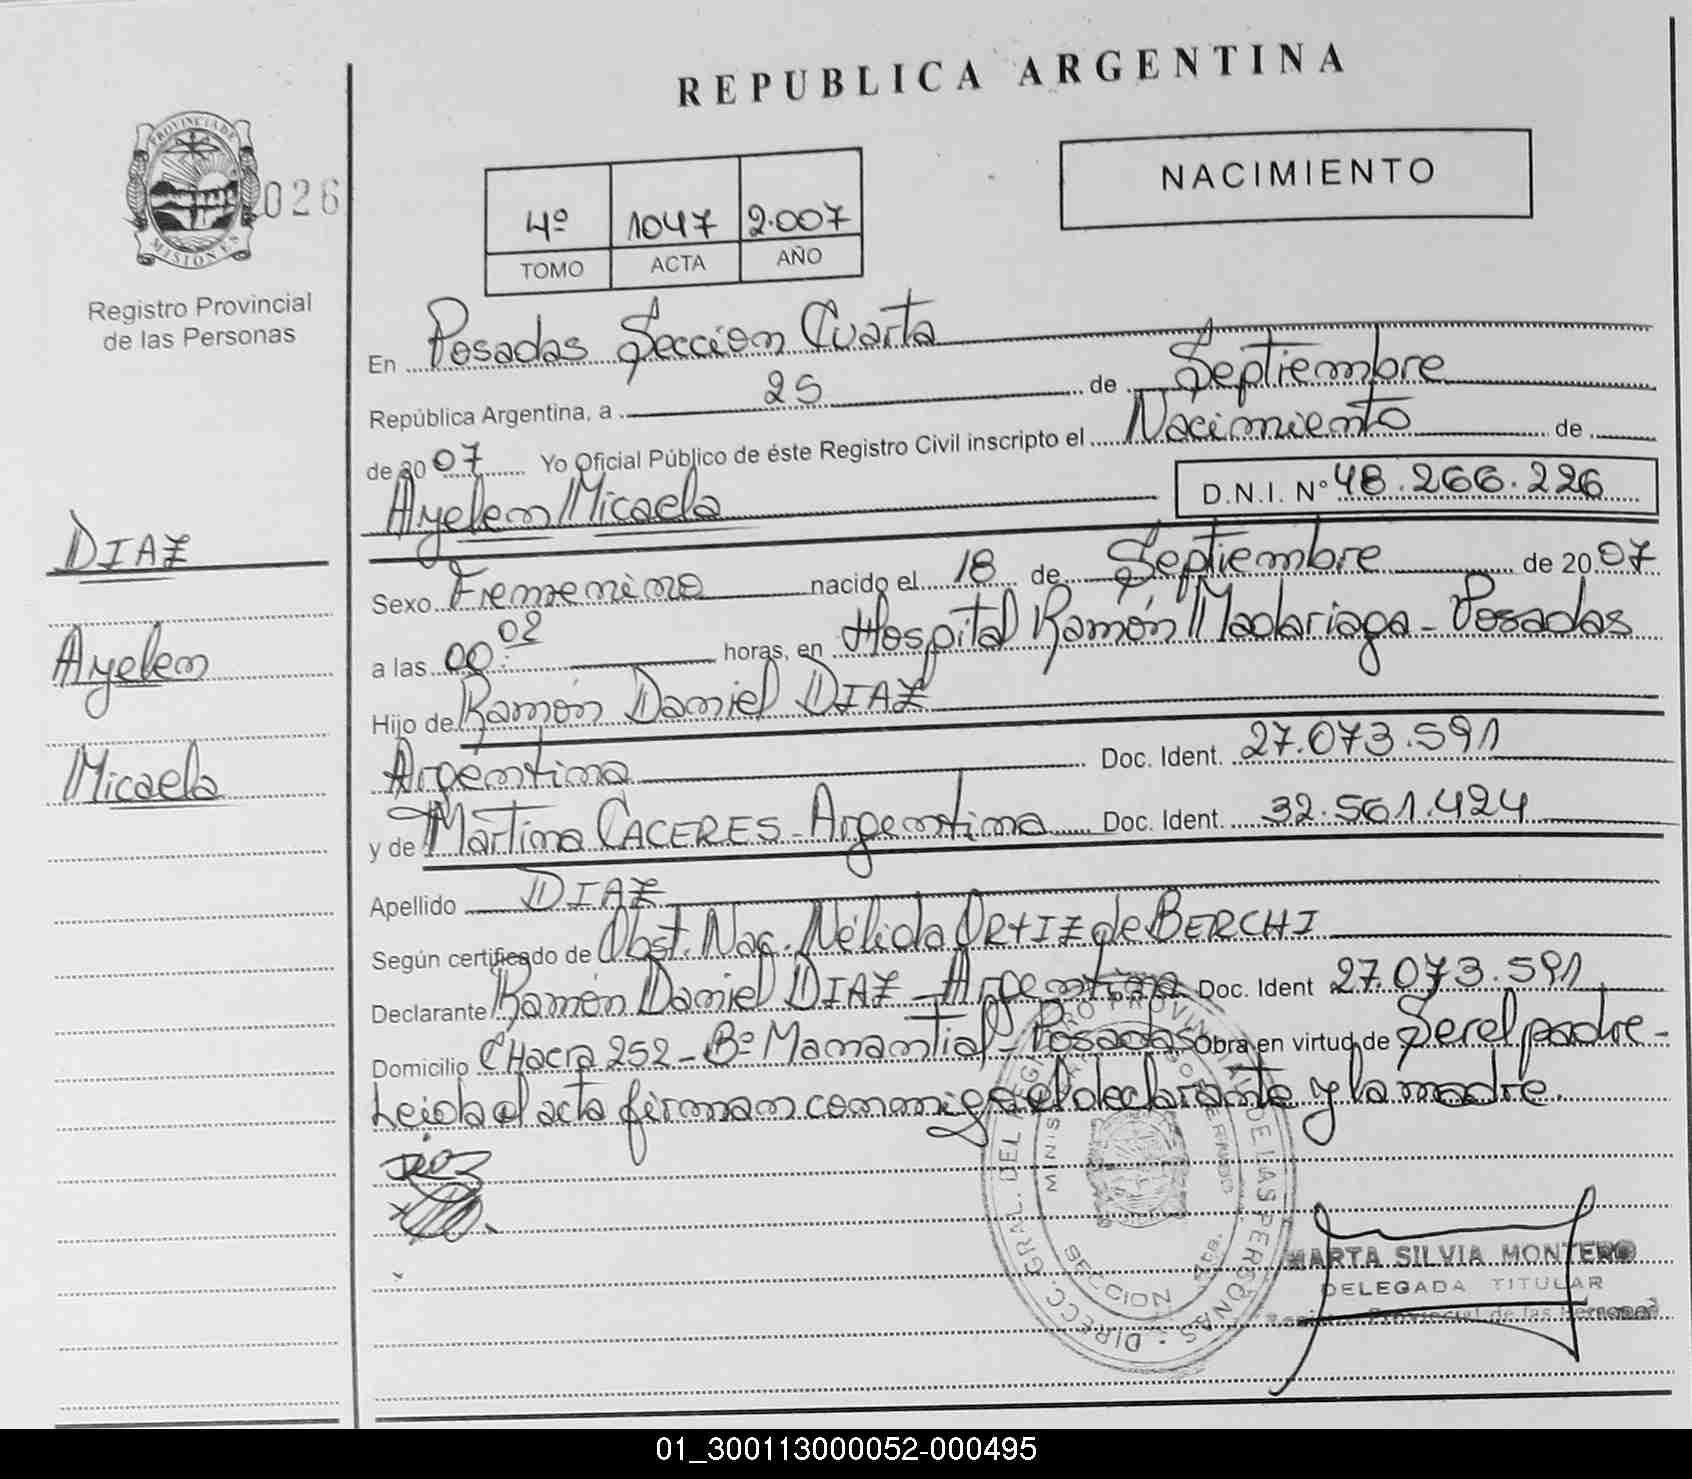 REPUBLICA ARGENTINA
PROVINCIA DE
MISIONES
026
Registro Provincial
de las Personas
NACIMIENTO
4º 1047 2.007
TOMO ACTA AÑO
En Posadas Sección Cuarta
República Argentina, a 25 de Septiembre
de 2007 Yo Oficial Público de éste Registro Civil inscripto el Nacimiento de
Ayelen Micaela D.N.I. Nº 48.266.226
DIAZ
Ayelen
Micaela
Sexo Femenino nacido el 18 de Septiembre de 2007
a las 00:02 horas, en Hospital Ramón Madariaga - Posadas
Hijo de Ramón Daniel DIAZ
Argentino Doc. Ident. 27.073.591
y de Martina CACERES - Argentina Doc. Ident. 32.561.424
Apellido DIAZ
Según certificado de Obst. Nac. Nélida ORTIZ de BERCHI
Declarante Ramón Daniel DIAZ - Argentino Doc. Ident 27.073.591
Domicilio CHacra 252 - Bº Manantial - Posadas Obra en virtud de Ser el padre -
Leida el acta firman conmigo el declarante y la madre.
DIRECC. GRAL. DEL REGISTRO PROVINCIAL DE LAS PERSONAS
SECCION 4ta.
MARTA SILVIA MONTERO
DELEGADA TITULAR
Registro Provincial de las Personas
01_300113000052-000495